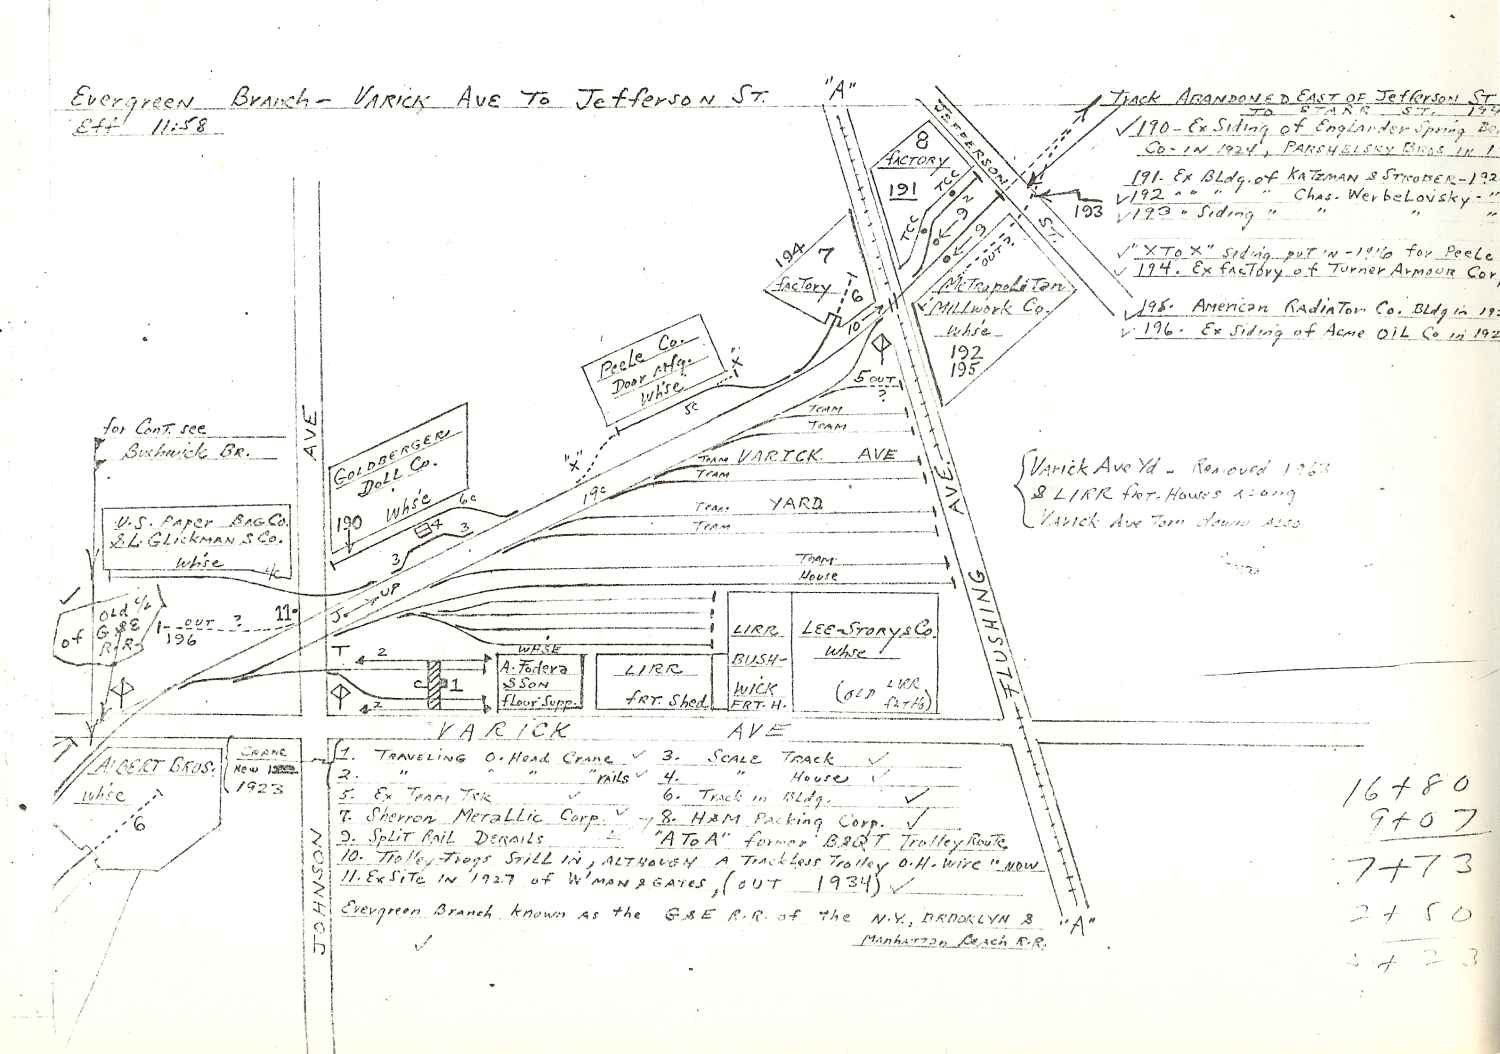 Evergreen Branch - Varick Ave To Jefferson St.
Eff 11:58
"A"
Track Abandoned East of Jefferson ST
TO STARR ST.
✓190 - Ex Siding of Englander Spring
Co - IN 1924, Parshelsky Bros in
191. Ex Bldg. of Katzman &
✓192 " " " " Chas. Werbelovsky - "
✓193 " Siding " " " "
✓"X To X" siding put in - 1916 for Peele
✓194. Ex factory of Turner Armour Cor
✓195. American Radiator Co. Bldg in
✓196. Ex Siding of Acme Oil Co in 192
JEFFERSON ST.
193
8
factory
191
TCC
TCC
2
9
9
OUT
194
7
factory
6
10
Metropolitan
Millwork Co.
Whse
192
195
Peele Co.
Door Mfg.
Whse
"X"
"X"
5c
5 OUT
?
Team
Team
Team VARICK AVE
Team
Team YARD
Team
Team
House
19c
for Cont. see
Bushwick Br.
AVE
Goldberger
Doll Co.
Whse
190
6c
4
3
3
U.S. Paper Bag Co.
& L. Glickman & Co.
Whse
4/c
Old 4/c
of G&E
R.R.
OUT ?
196
11
J
UP
{Varick Ave Yd - Removed 1963
& LIRR frt. Houses along
Varick Ave Torn down also
AVE.
FLUSHING
T
2
2
C
1
WHSE
A. Fodera
& Son
flour Supp.
LIRR
frt. Shed
LIRR
BUSH-
WICK
FRT. H.
Lee-Story & Co.
Whse
(OLD LIRR
VARICK AVE
Albert Bros.
Whse
6
Crane
New
1923
JOHNSON
1. Traveling O. Head Crane ✓ 3. Scale Track ✓
2. " " " " rails ✓ 4. " House ✓
5. Ex Team Trk ✓ 6. Track in Bldg. ✓
7. Sherron Metallic Corp. ✓ 8. H&M Packing Corp. ✓
9. Split Rail Derails "A To A" former B&QT Trolley Route
10. Trolley Frogs still in, although A Trackless Trolley O.H. Wire "now
11. Ex Site in 1927 of W'man & Gates, (OUT 1934) ✓
Evergreen Branch known as the G&E R.R. of the N.Y., Brooklyn &
Manhattan Beach R.R.
✓
"A"
16+80
9+07
7+73
2+50